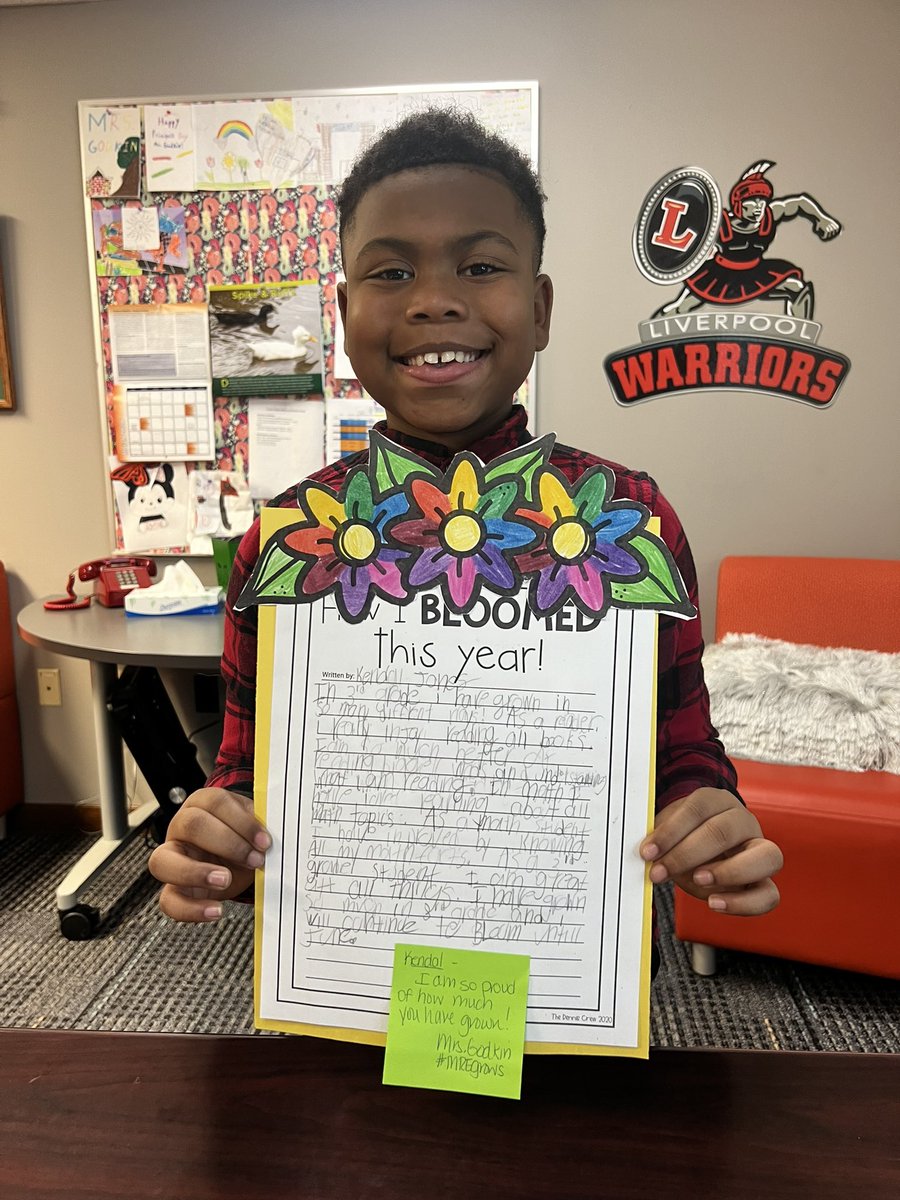 MRS.
GODKIN
Happy
Principal Day
Spike & Spork
L
LIVERPOOL
WARRIORS
How I BLOOMED
this year!
Written by: Kendal Jones
In 3rd grade I have grown in
so many different ways! As a reader,
I really injoy reading all books.
I can do much better at
reading harder text and understanding
what I am reading. In math I
love learning about all
math topics. As a math student
I have improved by knowing
all my math facts. As a 3rd
grader student I am great
at all things. I have grown
so much in 3rd grade and I
will continue to Bloom untill
June.
The Dennis Crew 2020
Kendal -
I am so proud
of how much
you have grown!
Mrs. Godkin
#MREgrows